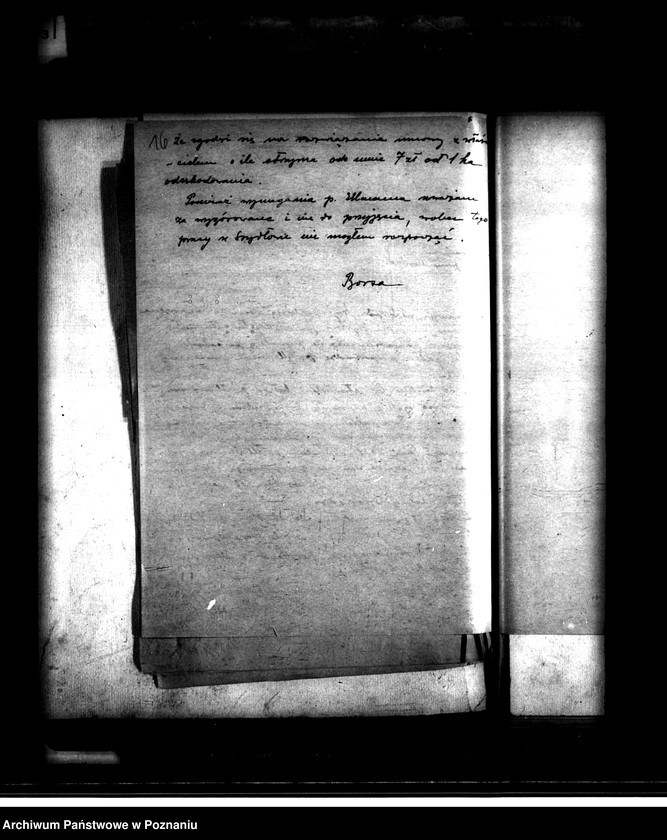 16 że zgodzi się na rozwiązanie umowy z właś
-cicielem o ile otrzyma ode mnie 7 zł od 1 ha
odszkodowania.
Ponieważ wymagania p. uważam
za wygórowane i nie do przyjęcia, wobec tego
pracy w nie mogłem rozpocząć.
Borsa
Archiwum Państwowe w Poznaniu